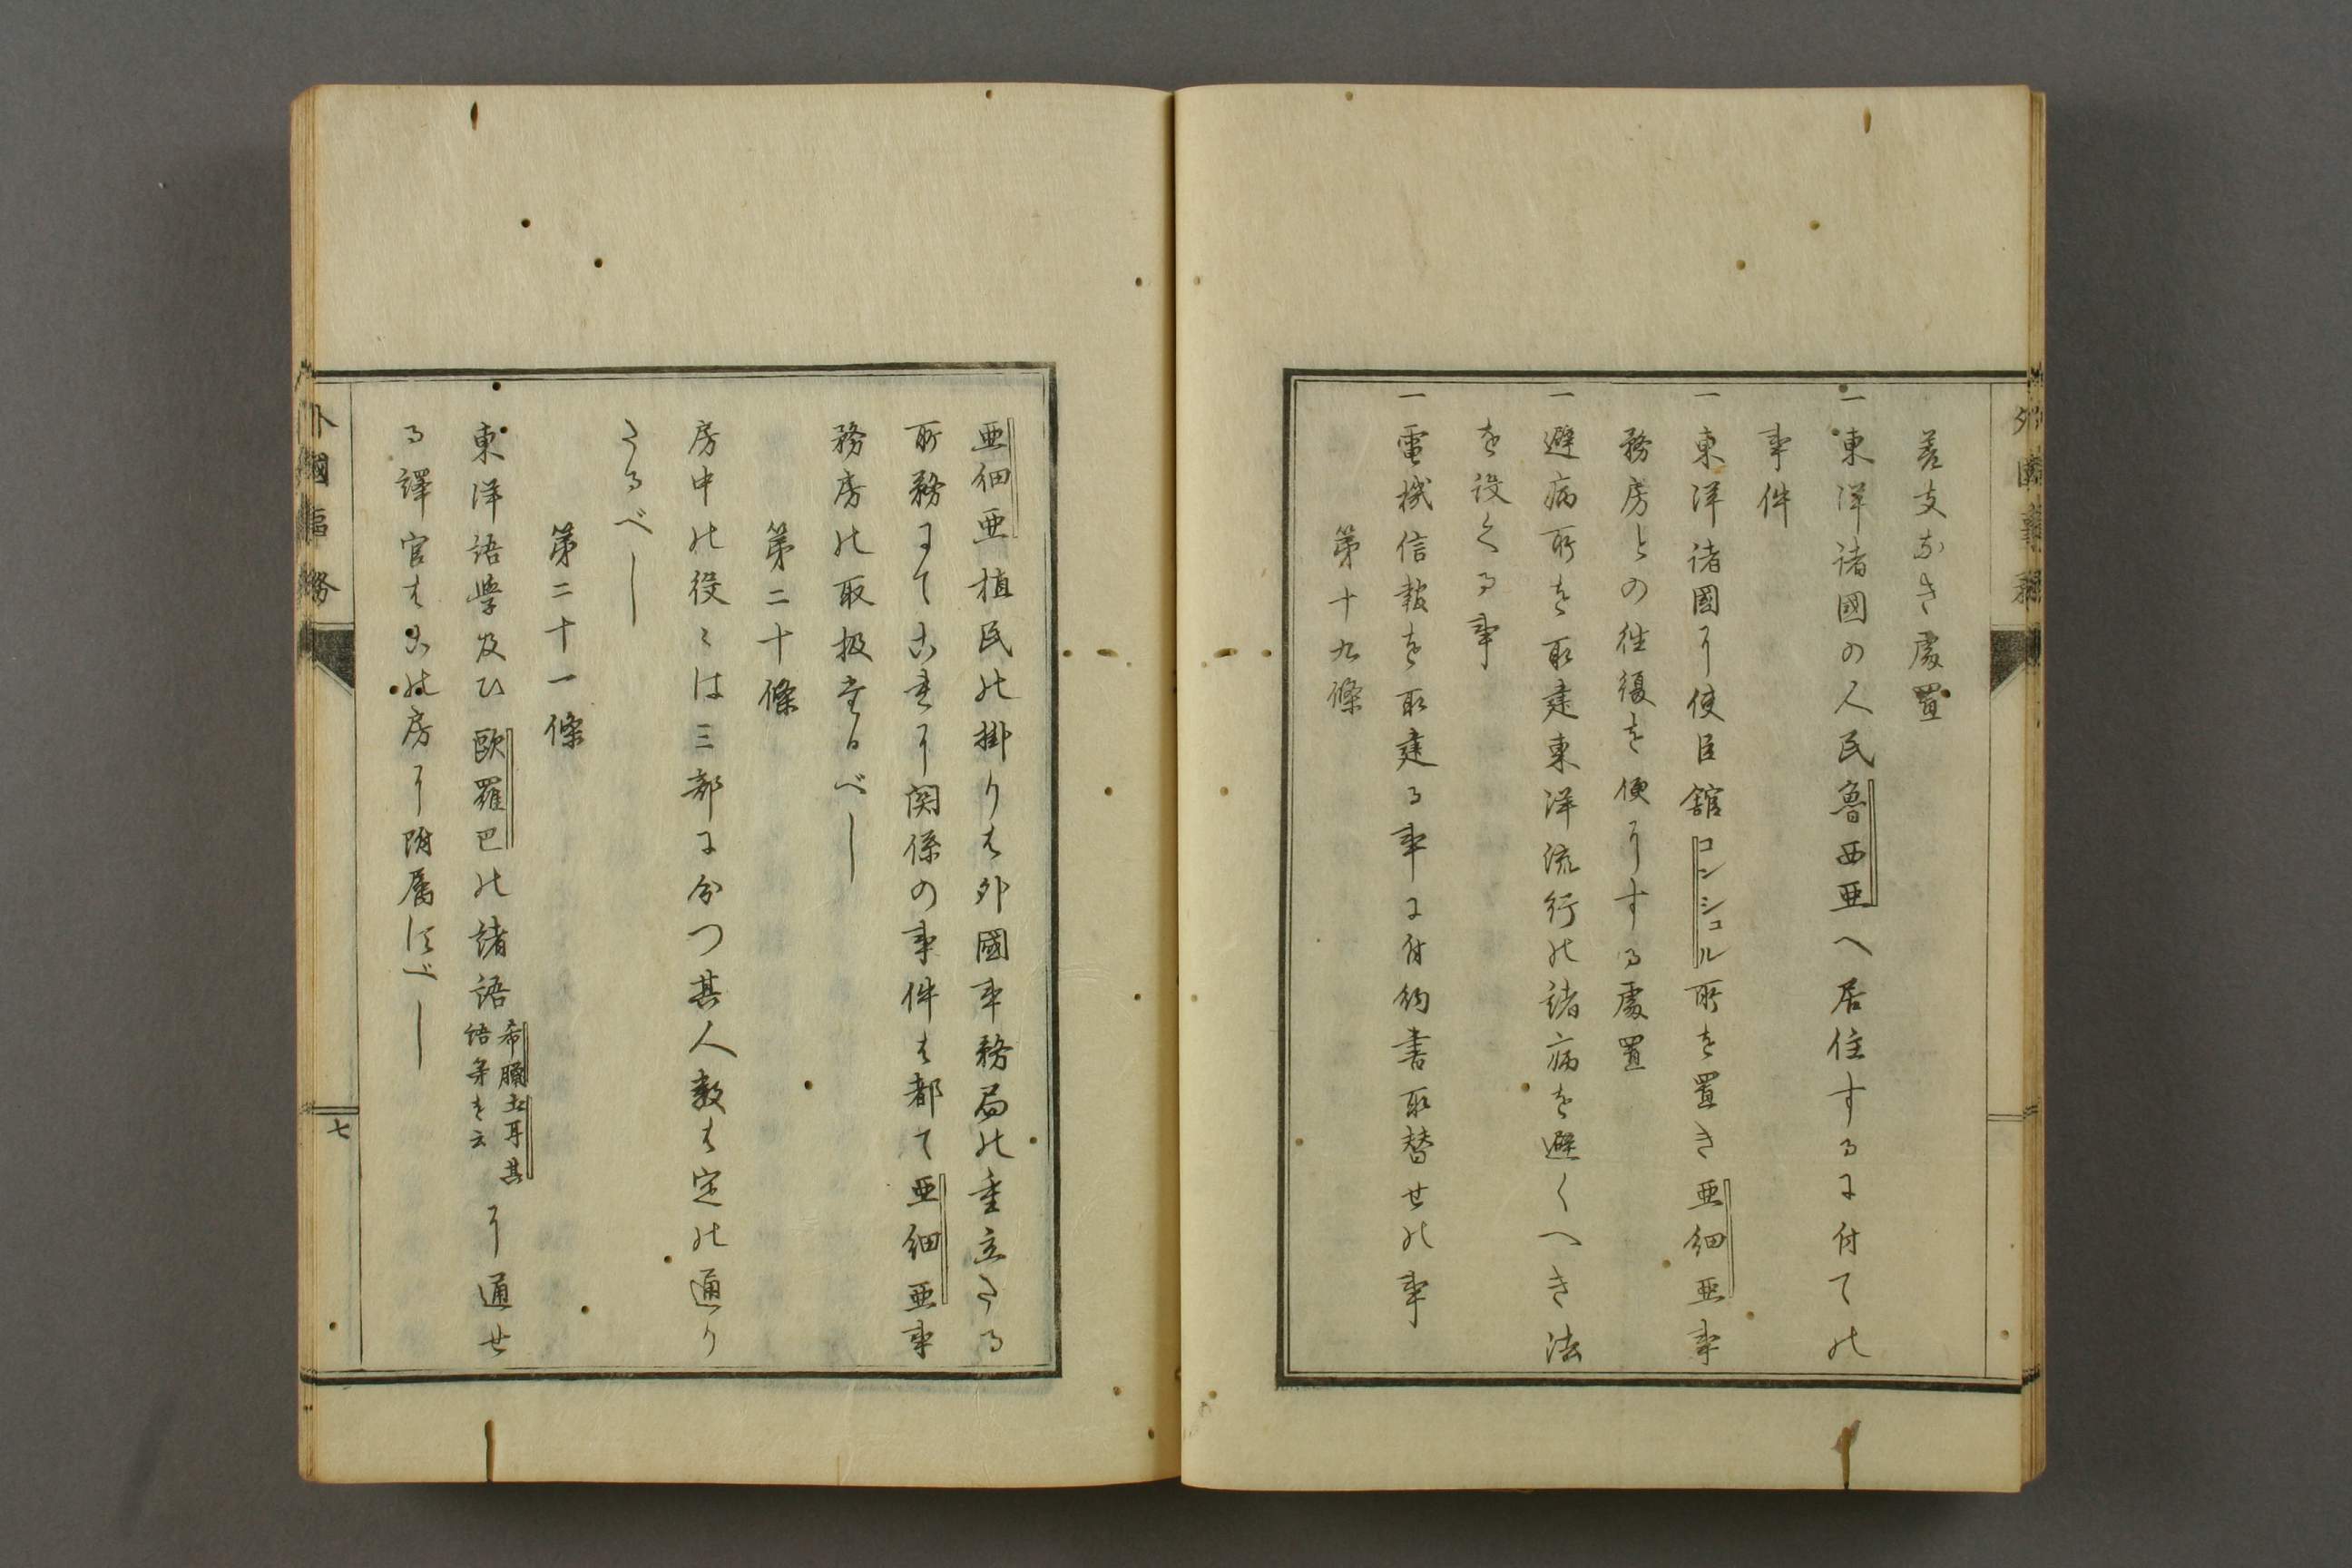 外國事務
差支なき處置
一東洋諸國の人民魯西亜へ居住するに付ての
事件
一東洋諸國に使臣舘コンシュル所を置き亜細亜事
務房との往復を便りする處置
一避病所を取建東洋流行の諸病を避くへき法
を設くる事
一電機信報を取建る事に付約書取替せの事
第十九條
亜細亜植民の掛りは外國事務局の重立たる
所務にて右等に関係の事件は都て亜細亜事
務房の取扱たるべし
第二十條
房中の役々は三部に分つ其人数は定の通り
たるべし
第二十一條
東洋語学及ひ歐羅巴の諸語希臘土耳其
語等を云に通せ
る譯官は此房に附属すべし
外國事務
七